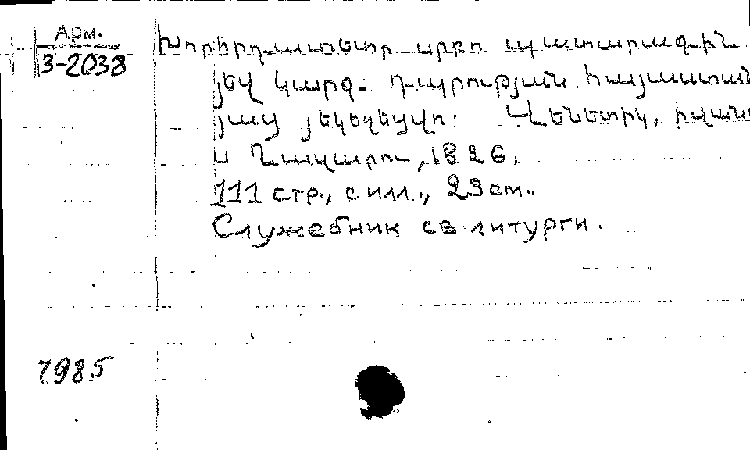 Арм.
3-2038
Խորհրդատետր սրբո պատարագին
յեվ կարգ. դպրության հայաստան
յայ յեկեղեցվո: Վենետիկ, իվան
ս Ղազարու, 1826.
111 стр., с илл., 23 см.
Служебник св литурги.
7985